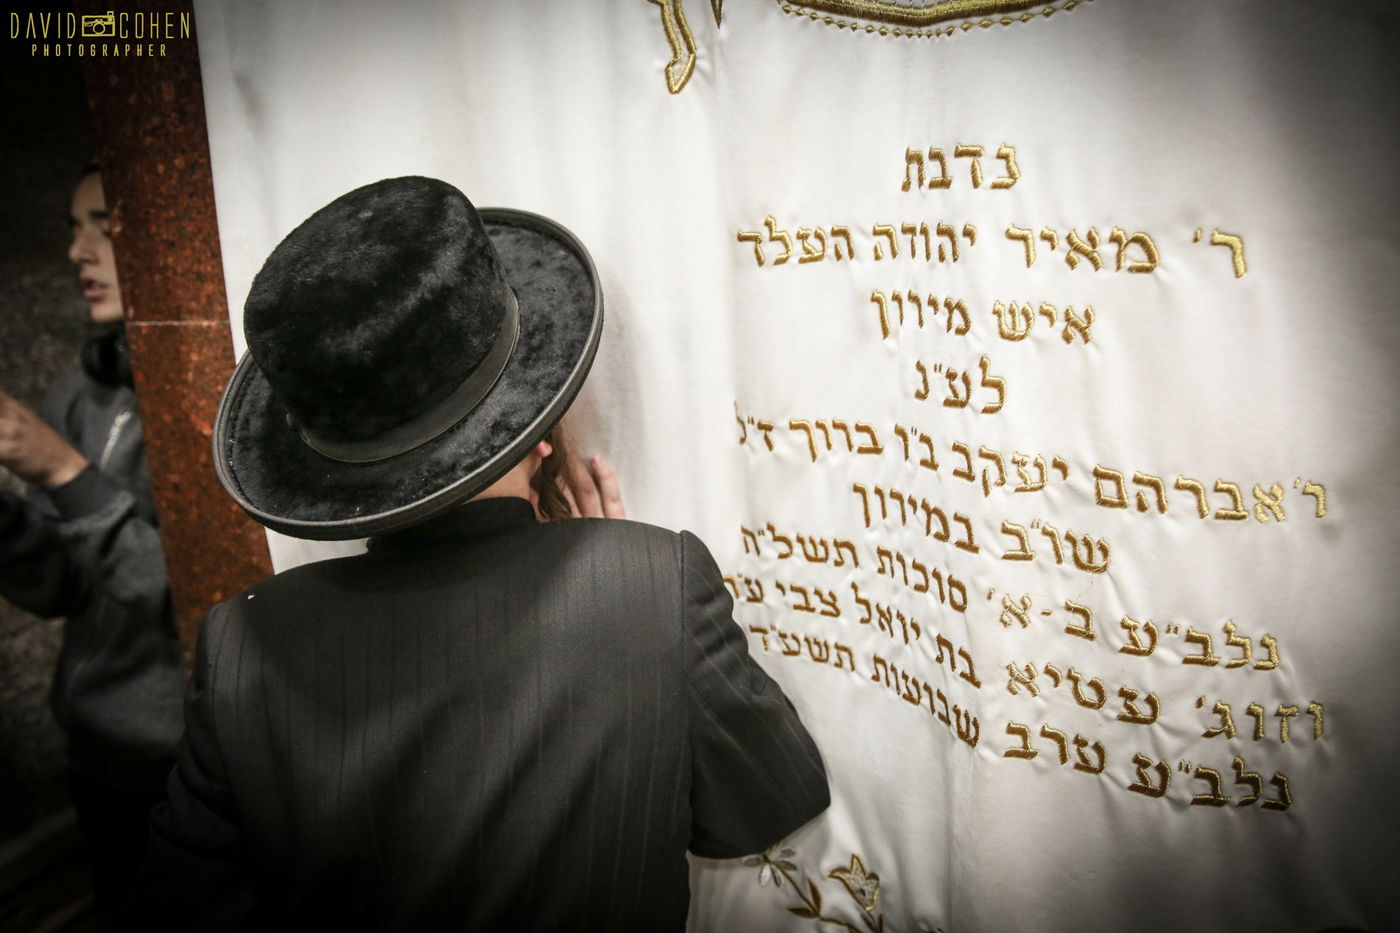 DAVID COHEN
PHOTOGRAPHER
נדבת
ר' מאיר יהודה העלד
איש מירון
לע"נ
ר' אברהם יעקב ב"ו ברוך ז"ל
שו"ב במירון
נלב"ע ב - א' סוכות תשל"ה
וזוג' עטיא בת יואל צבי ע"ה
נלב"ע ערב שבועות תשע"ד